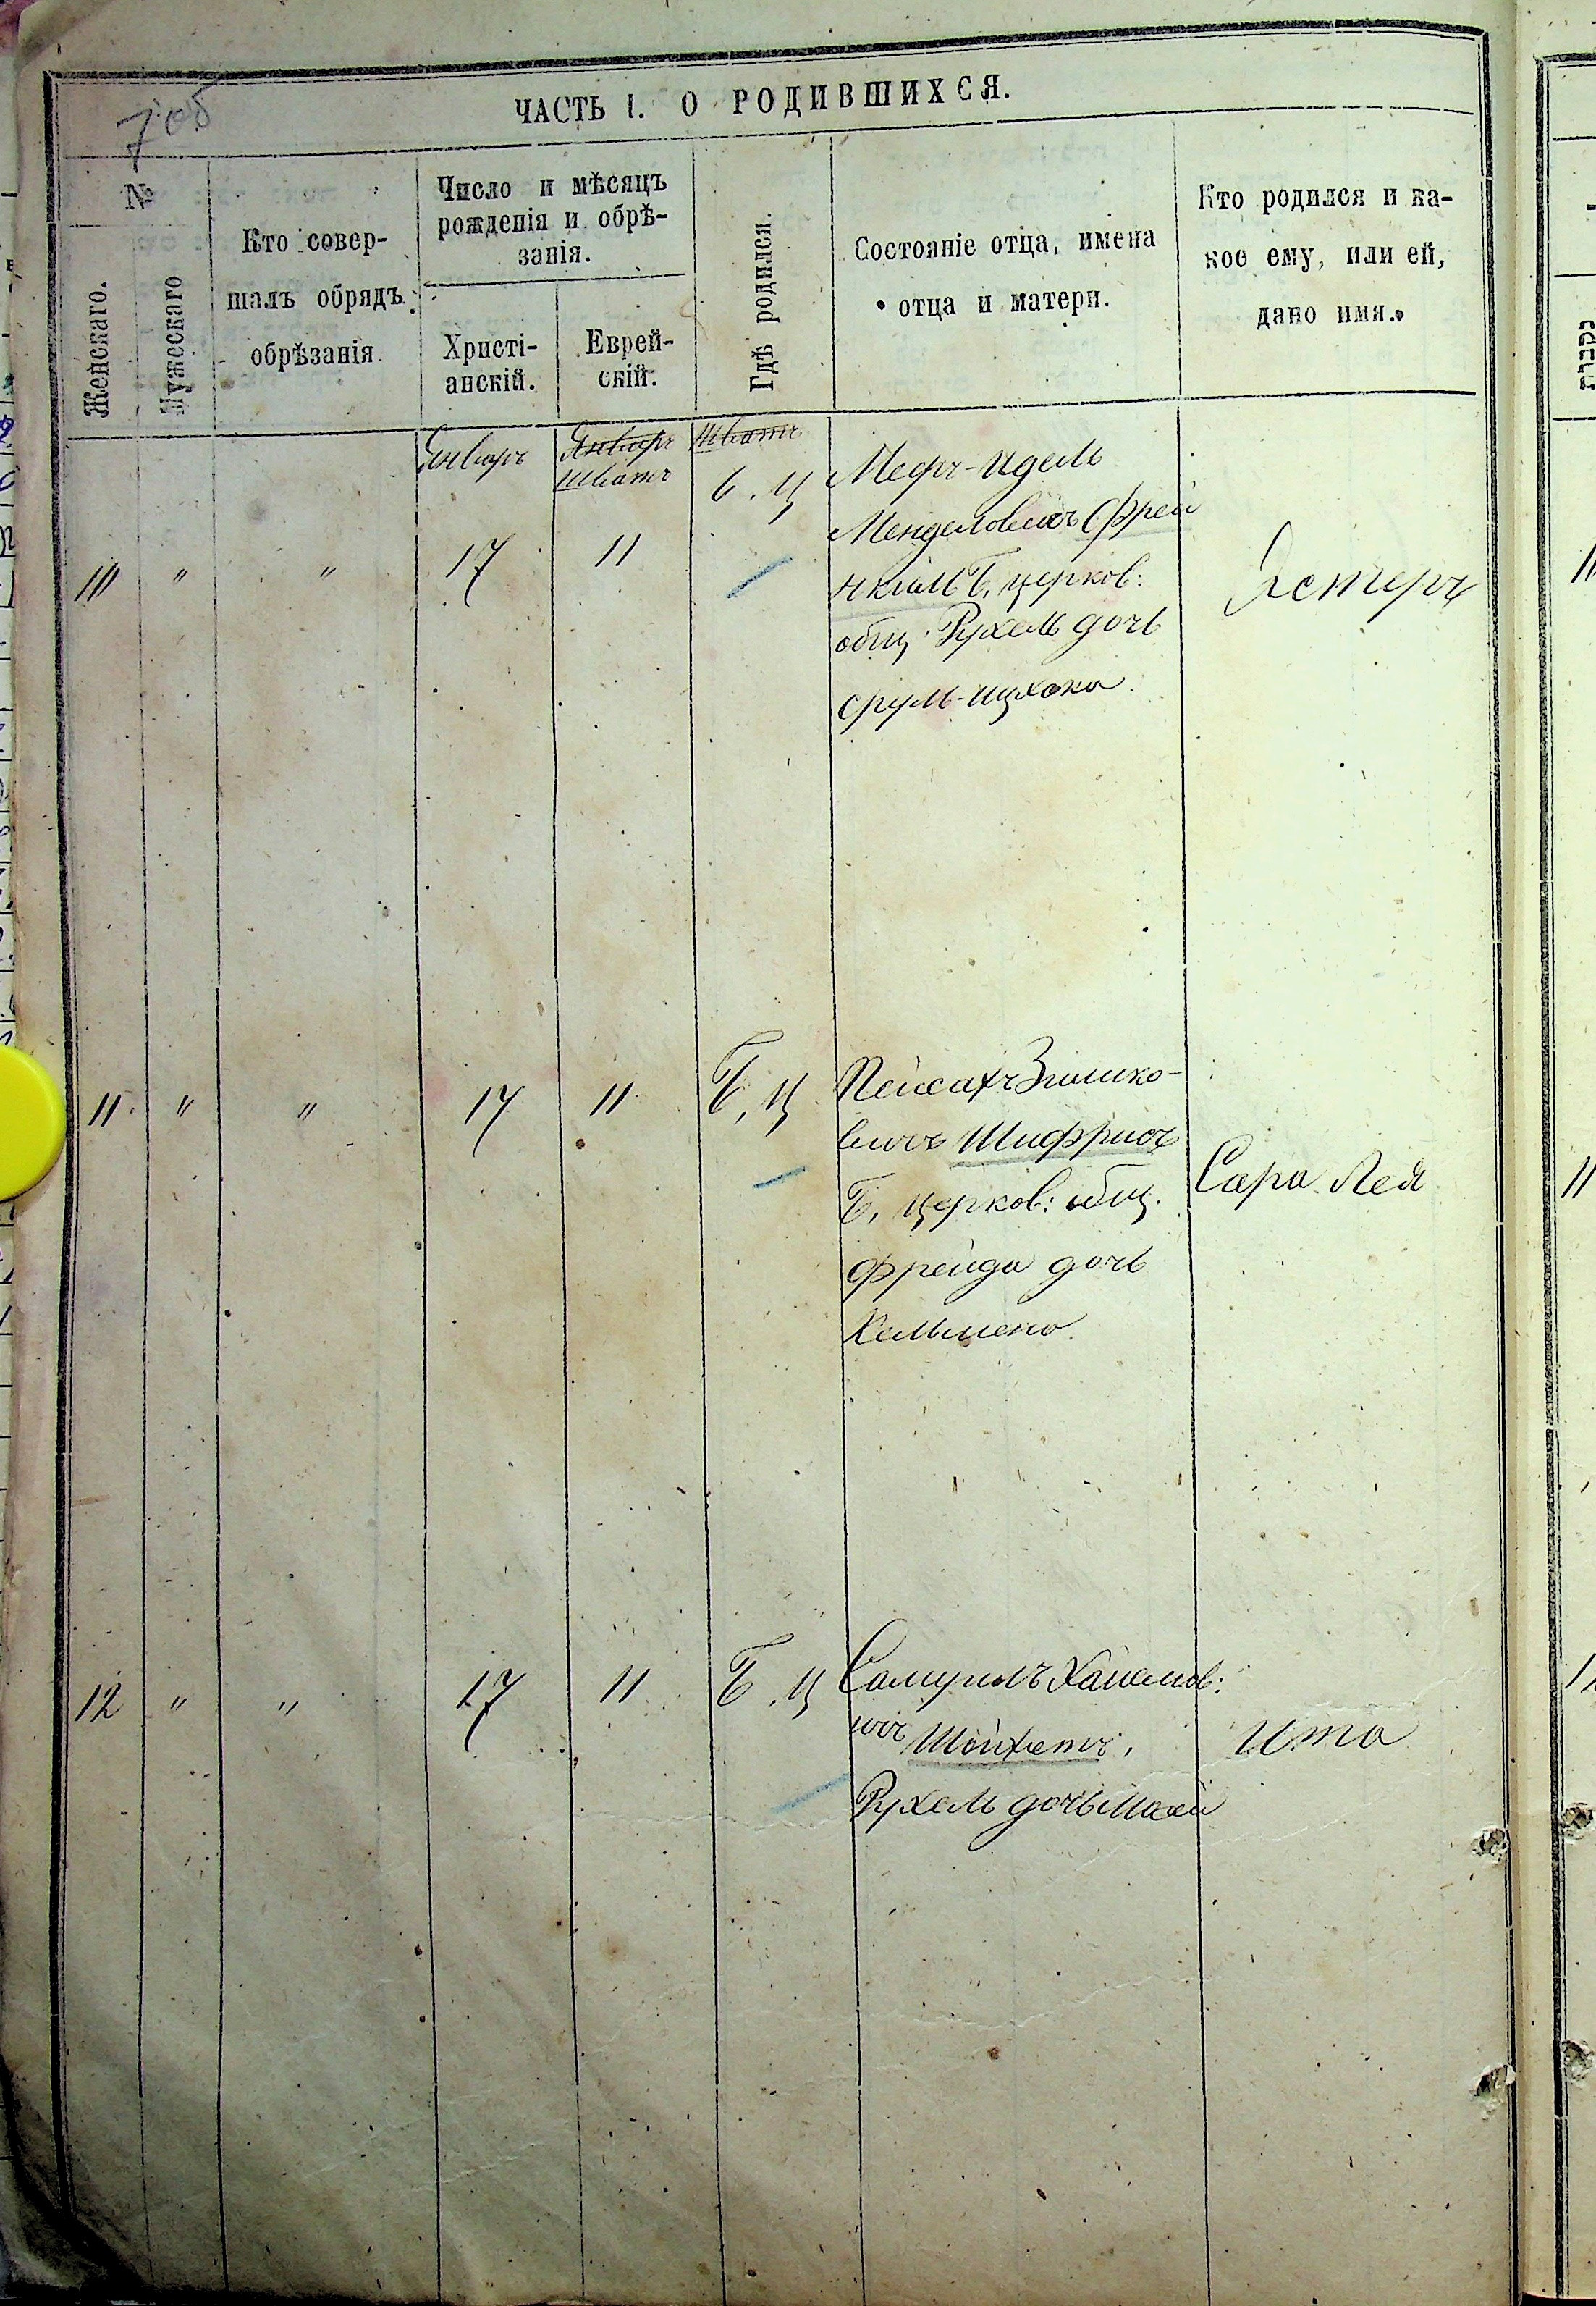 ЧАСТЬ I. О РОДИВШИХСЯ.
7об
№
Женскаго.
Мужескаго
Кто совер-
шалъ обрядъ
обрѣзанія.
Число и мѣсяцъ
рожденія и обрѣ-
занія.
Христі-
анскій.
Еврей-
скій.
Гдѣ родился.
Состояніе отца, имена
отца и матери.
Кто родился и ка-
кое ему, или ей,
дано имя.
Январь
Январь
Шватъ
Шватъ
" " 17 11 Б. Ц
Меер-Идель
Менделовичъ Френ
кіль Б. церков:
общ. Рухель дочь
Срулъ-Ицхока.
Эстеръ
11. " " 17 11. Б. Ц
Пейсахъ Зишко-
вичъ Шифрисъ
Б. церков: общ.
Фрейда дочь
Кельмена.
Сара Лея
12 " " 17 11 Б. Ц
Самуилъ Хаимов:
ичъ Шойхетъ,
Рухель дочь
Ита
נקבות
11